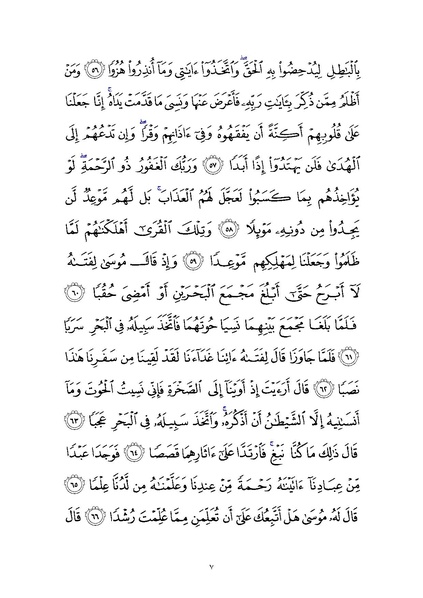 بِالْبَاطِلِ لِيُدْحِضُوا۟ بِهِ الْحَقَّ ۖ وَاتَّخَذُوٓا۟ ءَايَاتِي وَمَآ أُنذِرُوا۟ هُزُوًا ﴿٥٦﴾ وَمَنْ
أَظْلَمُ مِمَّن ذُكِّرَ بِـَٔايَاتِ رَبِّهِۦ فَأَعْرَضَ عَنْهَا وَنَسِيَ مَا قَدَّمَتْ يَدَاهُ ۚ إِنَّا جَعَلْنَا
عَلَىٰ قُلُوبِهِمْ أَكِنَّةً أَن يَفْقَهُوهُ وَفِيٓ ءَاذَانِهِمْ وَقْرًا ۖ وَإِن تَدْعُهُمْ إِلَى
الْهُدَىٰ فَلَن يَهْتَدُوٓا۟ إِذًا أَبَدًا ﴿٥٧﴾ وَرَبُّكَ الْغَفُورُ ذُو الرَّحْمَةِ ۖ لَوْ
يُؤَاخِذُهُم بِمَا كَسَبُوا۟ لَعَجَّلَ لَهُمُ الْعَذَابَ ۚ بَل لَّهُم مَّوْعِدٌ لَّن
يَجِدُوا۟ مِن دُونِهِۦ مَوْئِلًا ﴿٥٨﴾ وَتِلْكَ الْقُرَىٰٓ أَهْلَكْنَاهُمْ لَمَّا
ظَلَمُوا۟ وَجَعَلْنَا لِمَهْلِكِهِم مَّوْعِدًا ﴿٥٩﴾ وَإِذْ قَالَ مُوسَىٰ لِفَتَاهُ
لَآ أَبْرَحُ حَتَّىٰٓ أَبْلُغَ مَجْمَعَ الْبَحْرَيْنِ أَوْ أَمْضِيَ حُقُبًا ﴿٦٠﴾
فَلَمَّا بَلَغَا مَجْمَعَ بَيْنِهِمَا نَسِيَا حُوتَهُمَا فَاتَّخَذَ سَبِيلَهُۥ فِي الْبَحْرِ سَرَبًا
﴿٦١﴾ فَلَمَّا جَاوَزَا قَالَ لِفَتَاهُ ءَاتِنَا غَدَآءَنَا لَقَدْ لَقِينَا مِن سَفَرِنَا هَٰذَا
نَصَبًا ﴿٦٢﴾ قَالَ أَرَءَيْتَ إِذْ أَوَيْنَآ إِلَى الصَّخْرَةِ فَإِنِّي نَسِيتُ الْحُوتَ وَمَآ
أَنسَىٰنِيهُ إِلَّا الشَّيْطَانُ أَنْ أَذْكُرَهُۥ ۚ وَاتَّخَذَ سَبِيلَهُۥ فِي الْبَحْرِ عَجَبًا ﴿٦٣﴾
قَالَ ذَٰلِكَ مَا كُنَّا نَبْغِ ۚ فَارْتَدَّا عَلَىٰٓ ءَاثَارِهِمَا قَصَصًا ﴿٦٤﴾ فَوَجَدَا عَبْدًا
مِّنْ عِبَادِنَآ ءَاتَيْنَاهُ رَحْمَةً مِّنْ عِندِنَا وَعَلَّمْنَاهُ مِن لَّدُنَّا عِلْمًا ﴿٦٥﴾
قَالَ لَهُۥ مُوسَىٰ هَلْ أَتَّبِعُكَ عَلَىٰٓ أَن تُعَلِّمَنِ مِمَّا عُلِّمْتَ رُشْدًا ﴿٦٦﴾ قَالَ
٧